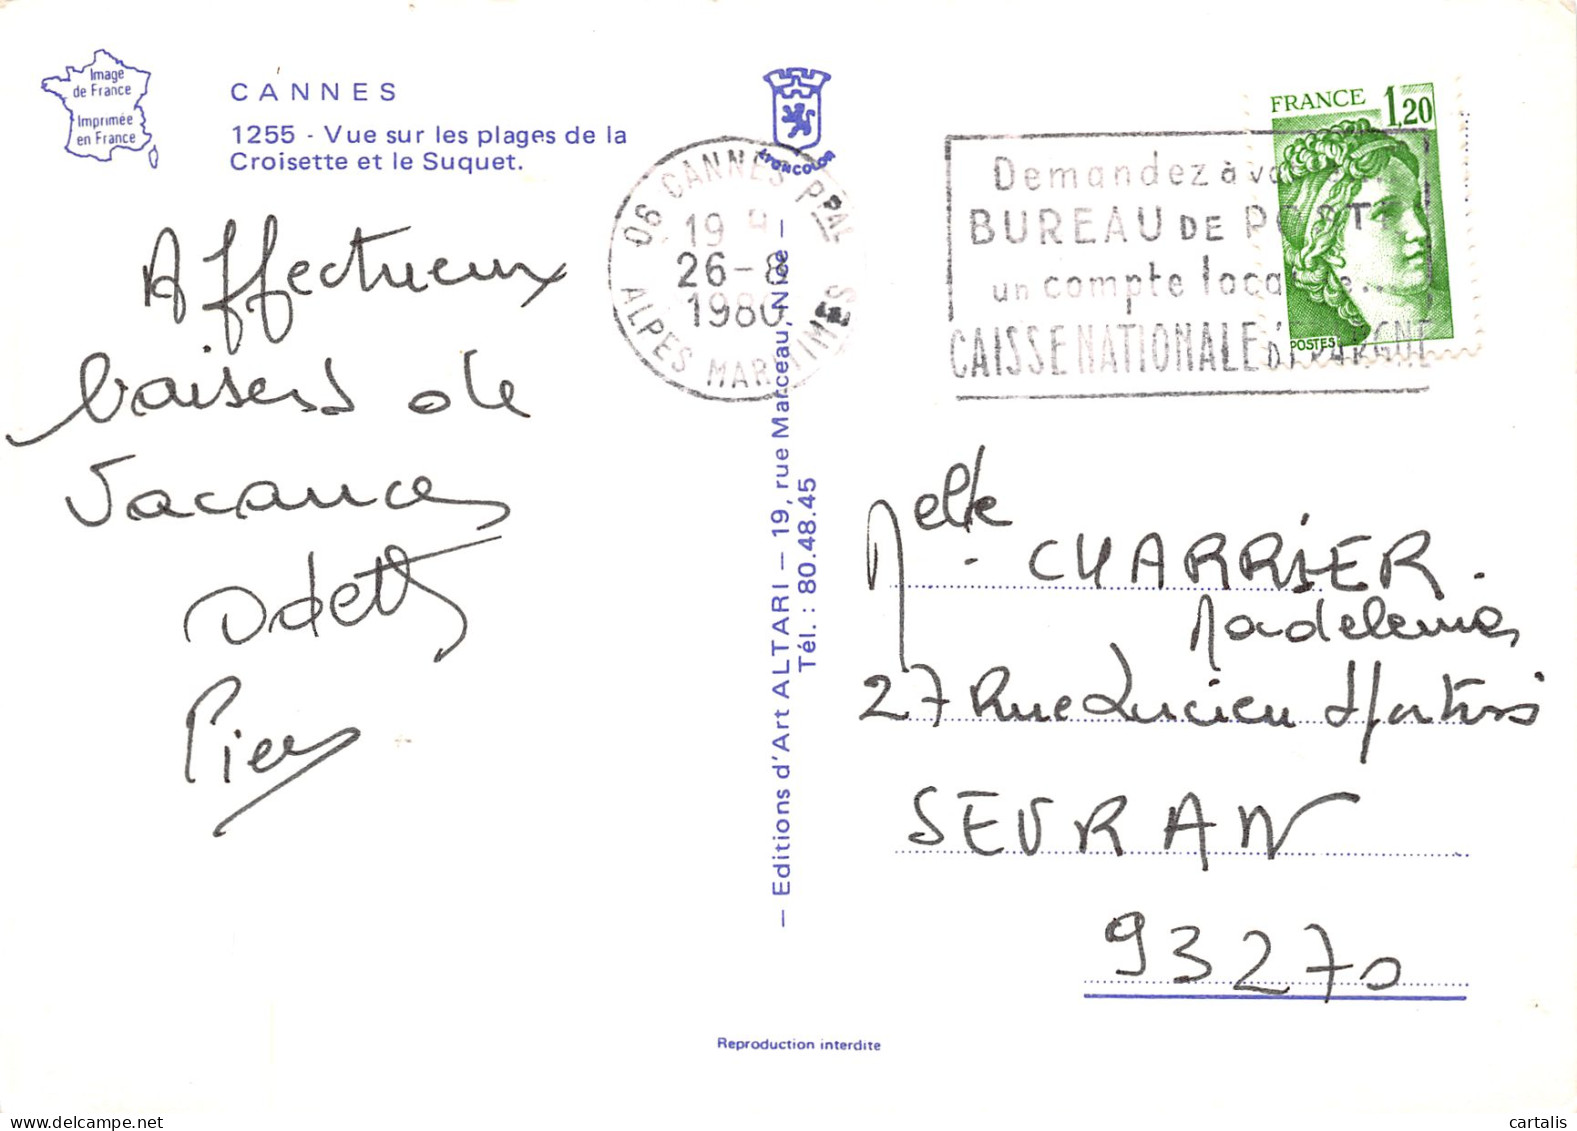 Image
de France
Imprimée
en France
CANNES
1255 - Vue sur les plages de la
Croisette et le Suquet.
YVONCOLOR
06 CANNES PPAL
19 H
26-8
1980
ALPES MARITIMES
Demandez à
BUREAU DE POST
un compte
CAISSE NATIONALE D'ÉPARGNE
FRANCE 1,20
POSTES
Affectueux
baisers de
Vacances
Odette
Pierre
— Editions d'Art ALTARI — 19, rue Marceau, Nice —
Tél. : 80.48.45
Melle CHARRIER
Madeleine
27 Rue Lucien
SEVRAN
93270
Reproduction interdite
cartalis